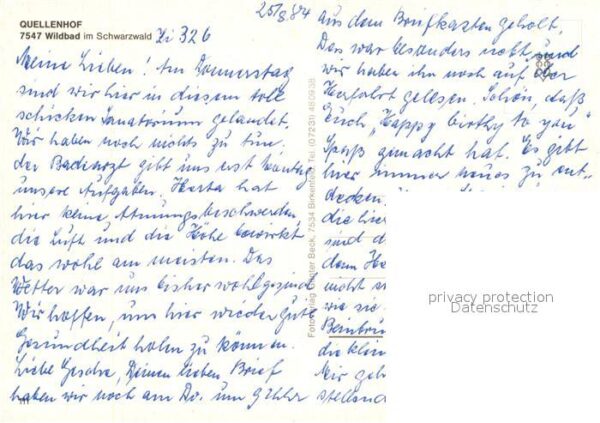 QUELLENHOF
7547 Wildbad im Schwarzwald Zi 326
25/8.84
Meine Lieben! Am Donnerstag
sind wir hier in diesem tollen
schicken Sanatorium gelandet.
Wir haben noch nichts zu tun,
der Badearzt gibt uns erst Montag
unsere Aufgaben. Herta hat
hier keine Atmungsbeschwerden,
die Luft und die Höhe bewirkt
das wohl am meisten. Das
Wetter war uns bisher wohlgesonnen
Wir hoffen, uns hier wieder gute
Gesundheit holen zu können.
Liebe Gesche, Deinen lieben Brief
haben wir noch am Do. um 9 Uhr
aus dem Briefkasten geholt.
Das war besonders nett, und
wir haben ihn noch auf der
Herfahrt gelesen. Schön, daß
Euch "Happy birthy to you"
Spaß gemacht hat. Es gibt
hier immer neues zu ent-
decken.
die hier
sind d
dem He
nicht s
wie sie
Beinbrü
die klein
Mir geh
stellend
Fotoverlag Günter Beck, 7534 Birkenfeld Tel. (07231) 480938
privacy protection
Datenschutz